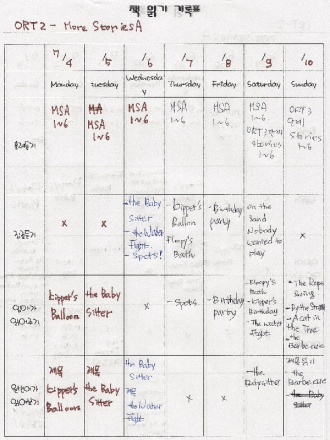 책 읽기 기록표
ORT2 - More Stories A
7/4 /5 /6 /7 /8 /9 /10
Monday Tuesday Wednesday Thursday Friday Saturday Sunday
MSA 1~6
MSA 1~6
MSA 1~6
MSA 1~6
MSA 1~6
MSA 1~6
ORT3
Stories 1~6
x
x
- the Baby Sitter
- the Water Fight
- Spots!
- kipper's Balloon
Floppy's Bath
- Birthday party
on the Sand
Nobody wanted to play
x
kipper's Balloon
the Baby Sitter
x
- Spots
- Birthday party
- Floppy's Bath
- kipper's Birthday
- the water Fight
- the Rope Swing
- By the Stream
- A cat in the Tree
- the Barbecue
kipper's Balloons
the Baby Sitter
the Baby Sitter
the Water Fight
x
x
- the Babysitter
- the Barbecue